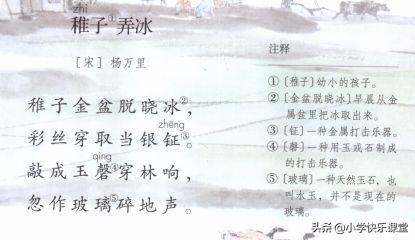 zhì
稚子①弄冰
[宋] 杨万里
稚子金盆脱晓冰②，
zhēng
彩丝穿取当银钲③。
qìng
敲成玉磬④穿林响，
忽作玻璃⑤碎地声。
注释
①〔稚子〕幼小的孩子。
②〔金盆脱晓冰〕早晨从金
属盆里把冰取出来。
③〔钲〕一种金属打击乐器。
④〔磬〕一种用玉或石制成
的打击乐器。
⑤〔玻璃〕一种天然玉石，也
叫水玉，并不是现在的
玻璃。
头条 @小学快乐课堂